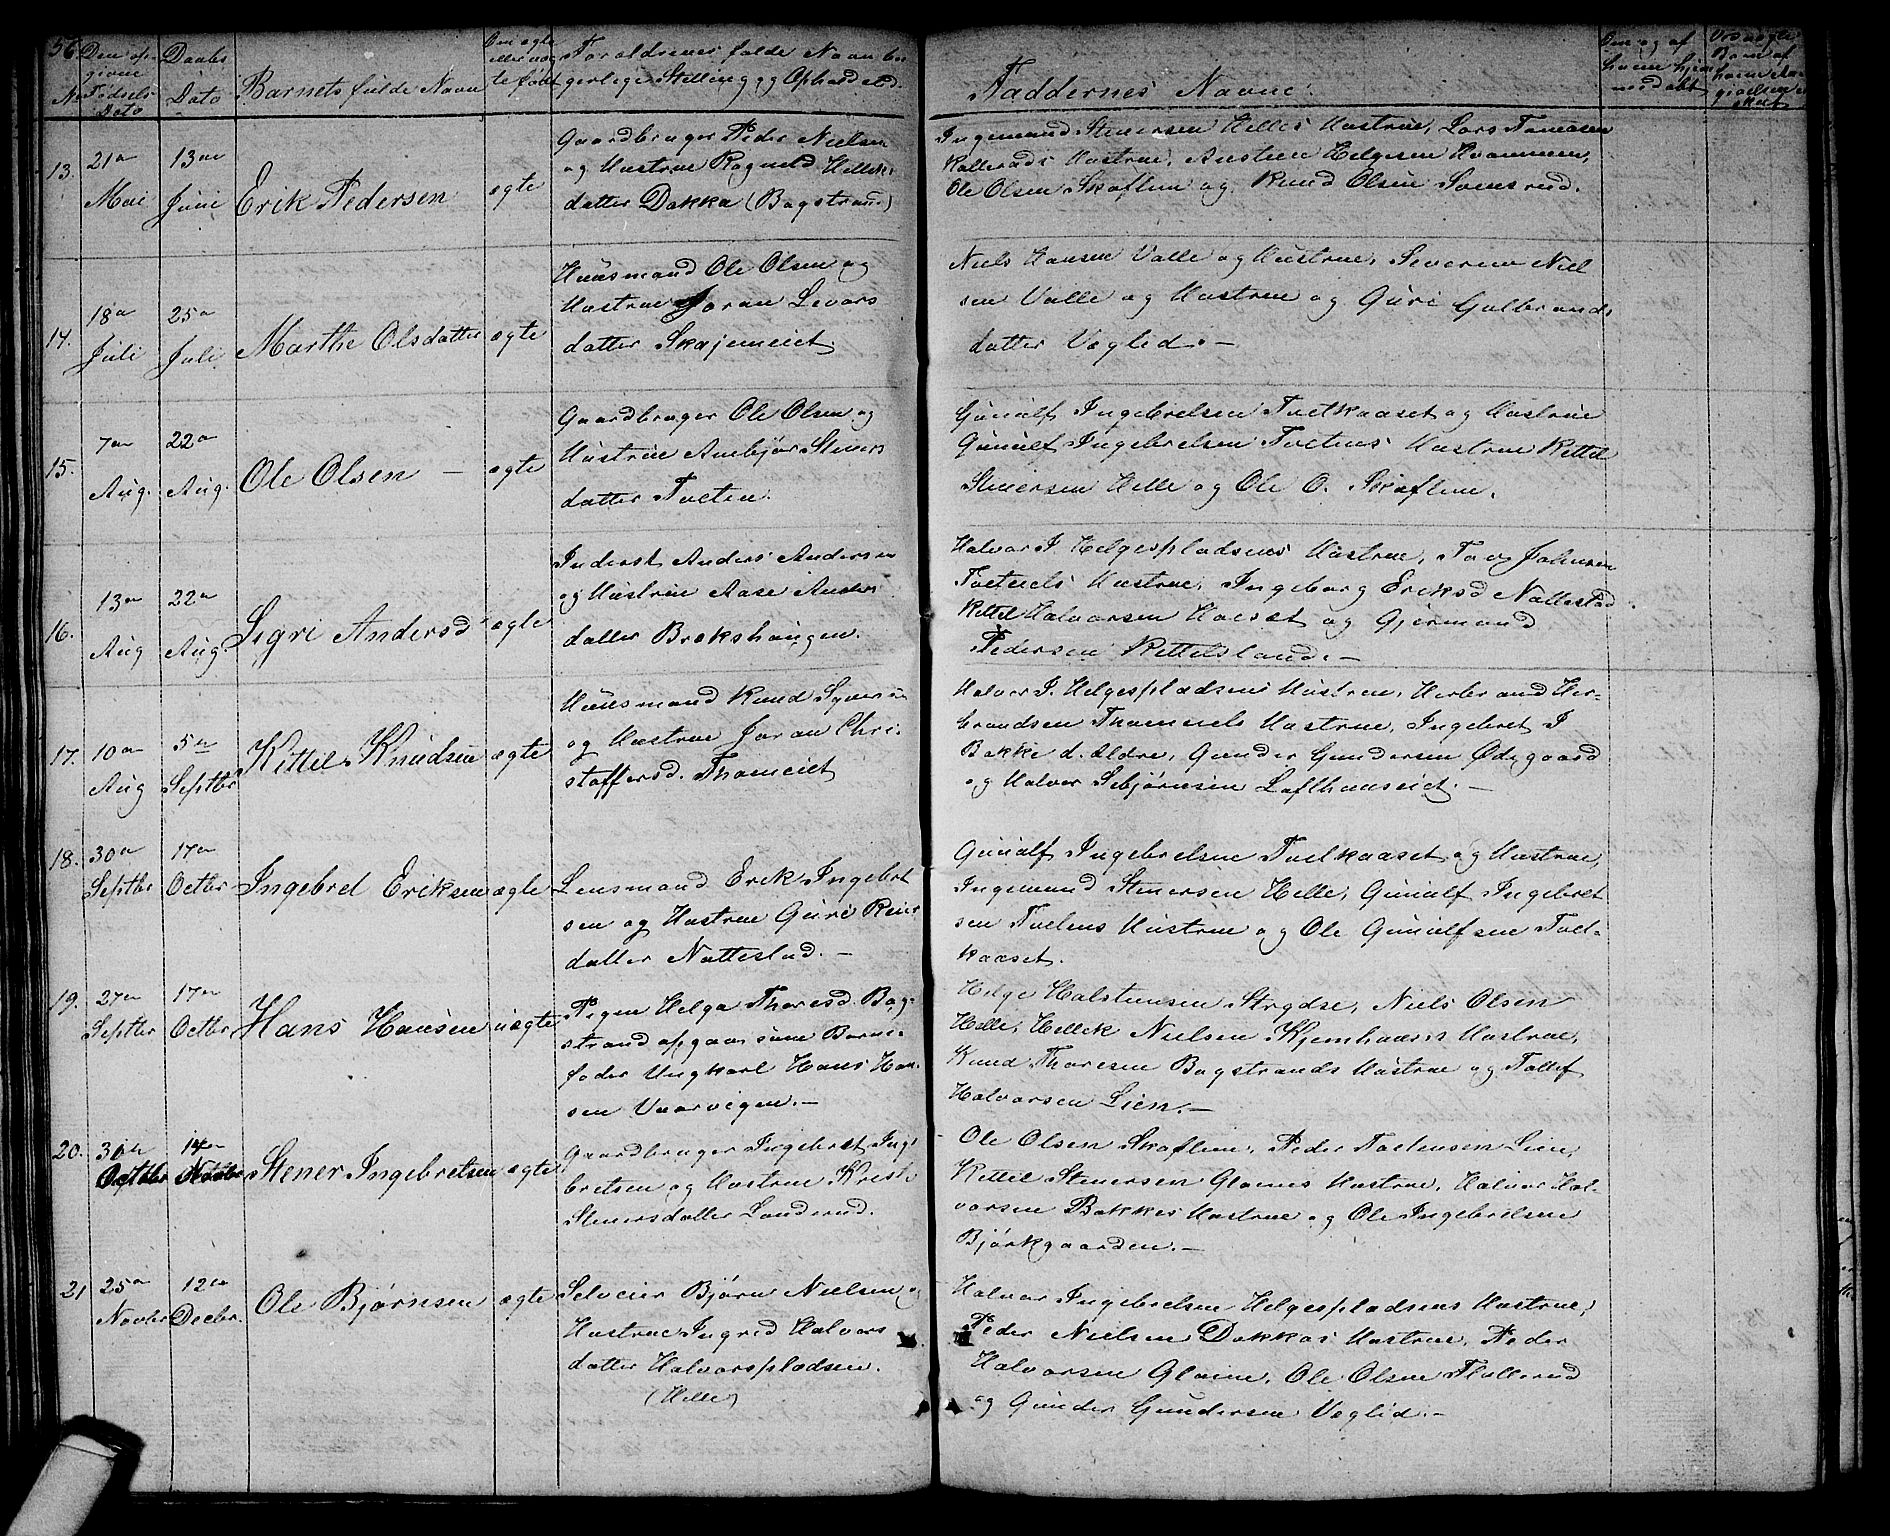 56
No
Den op-
givne
Fødsels
Dato
Daabs
Dato
Barnets fulde Navn
Om ægte
eller uæg
te født
Forældrenes fulde Navn bor
gerlige Stilling og Ophold sted.
Faddernes Navne.
Om og af
hvem hjem
medøbt
Ved uægte
Barn af
hvem An-
givelsen er
skeet
13.
21de
Mai
13de
Juni
Erik Pedersen
ægte
Gaardbruger Peder Nielsen
og Hustrue Ragnild Hellek-
datter Dokka (Bagstrand)
Ingemund Stenersen Helles Hustrue, Lars Tomasen
Kallerads Hustrue, Austeen Helgesen Kvammen,
Ole Olsen Skaflem og Knud Olsen Svensrud.
14.
18de
Juli
25de
Juli
Marthe Olsdatter
ægte
Huusmand Ole Olsen og
Hustrue Joran Levors
datter Skajemeiet
Niels Hansen Valle og Hustrue, Severin Niel
sen Valle og Hustrue og Guri Gulbrands
datter Væglid. —
15.
7de
Aug.
22de
Aug.
Ole Olsen —
ægte
Gaardbruger Ole Olsen og
Hustrue Anebjør Steners
datter Tveten.
Gunulf Ingebretsen Tvetkaaset og Hustrue
Gunulf Ingebretsen Tvetens Hustrue Kettel
Stenersen Helle og Ole O. Skaflem.
16.
13de
Aug
22de
Aug.
Sigri Andersd
ægte
Inderst Anders Andersen
og Hustrue Aase Anders
datter Brokshaugen.
Halvor I. Helgespladsens Hustrue, Tov Johnsen
Tveteiets Hustrue, Ingeborg Eriksd Nattestad.
Kettel Halvorsen Haaset og Gjermund
Pedersen Kettelsland. —
17.
10de
Aug
5te
Septbr
Kittel Knudsen
ægte
Huusmand Knud Syversen
og Hustrue Joran Chri-
stoffersd. Thomeiet
Halvor I. Helgespladsens Hustrue, Herbrand Her-
brandsen Thomeiets Hustrue, Ingebret I
Bakke d. Ældre, Gunder Gundersen Ødegaard
og Halvor Sebjørnsen Lofthuuseiet. —
18.
30de
Septbr
17de
Octbr
Ingebret Eriksen
ægte
Lensmand Erik Ingebret
sen og Hustrue Guri Reiers
datter Nattestad. —
Gunulf Ingebretsen Tvetkaaset og Hustrue,
Ingemund Stenersen Helle, Gunulf Ingebret
sen Tvetens Hustrue og Ole Gunulfsen Tvet-
kaaset.
19.
27de
Septbr
17de
Octbr
Hans Hansen
uægte
Pigen Helga Thoresd. Bag-
strand opgav som Barne-
fader Ungkarl Hans Han-
sen Vaarvigen. —
Helge Halstensen Strydse, Niels Olsen
Helle, Hellek Nielsen Kjemhuus's Hustrue,
Knud Thoresen Bagstrands Hustrue og Tollef
Halvorsen Lien. —
20.
30te
Octbr
14de
Novbr
Stener Ingebretsen
ægte
Gaardbruger Ingebret Inge
bretsen og Hustrue Kristi
Stenersdatter Landerud.
Ole Olsen Skaflem, Peder Torstensen Lien,
Kettel Stenersen Gloimes Hustrue, Halvor Hal-
vorsen Bakkes Hustrue og Ole Ingebretsen
Bjørkgaarden. —
21
25de
Novbr
12te
Decbr.
Ole Bjørnsen
ægte
Selveier Bjørn Nielsen og
Hustrue Ingrid Halvors
datter Halvorspladsen.
(Helle)
Halvor Ingebretsen Helgespladsens Hustrue,
Peder Nielsen Dokkas Hustrue, Peder
Halvorsen Gloime, Ole Olsen Flatterud
og Gunder Gundersen Væglid. —